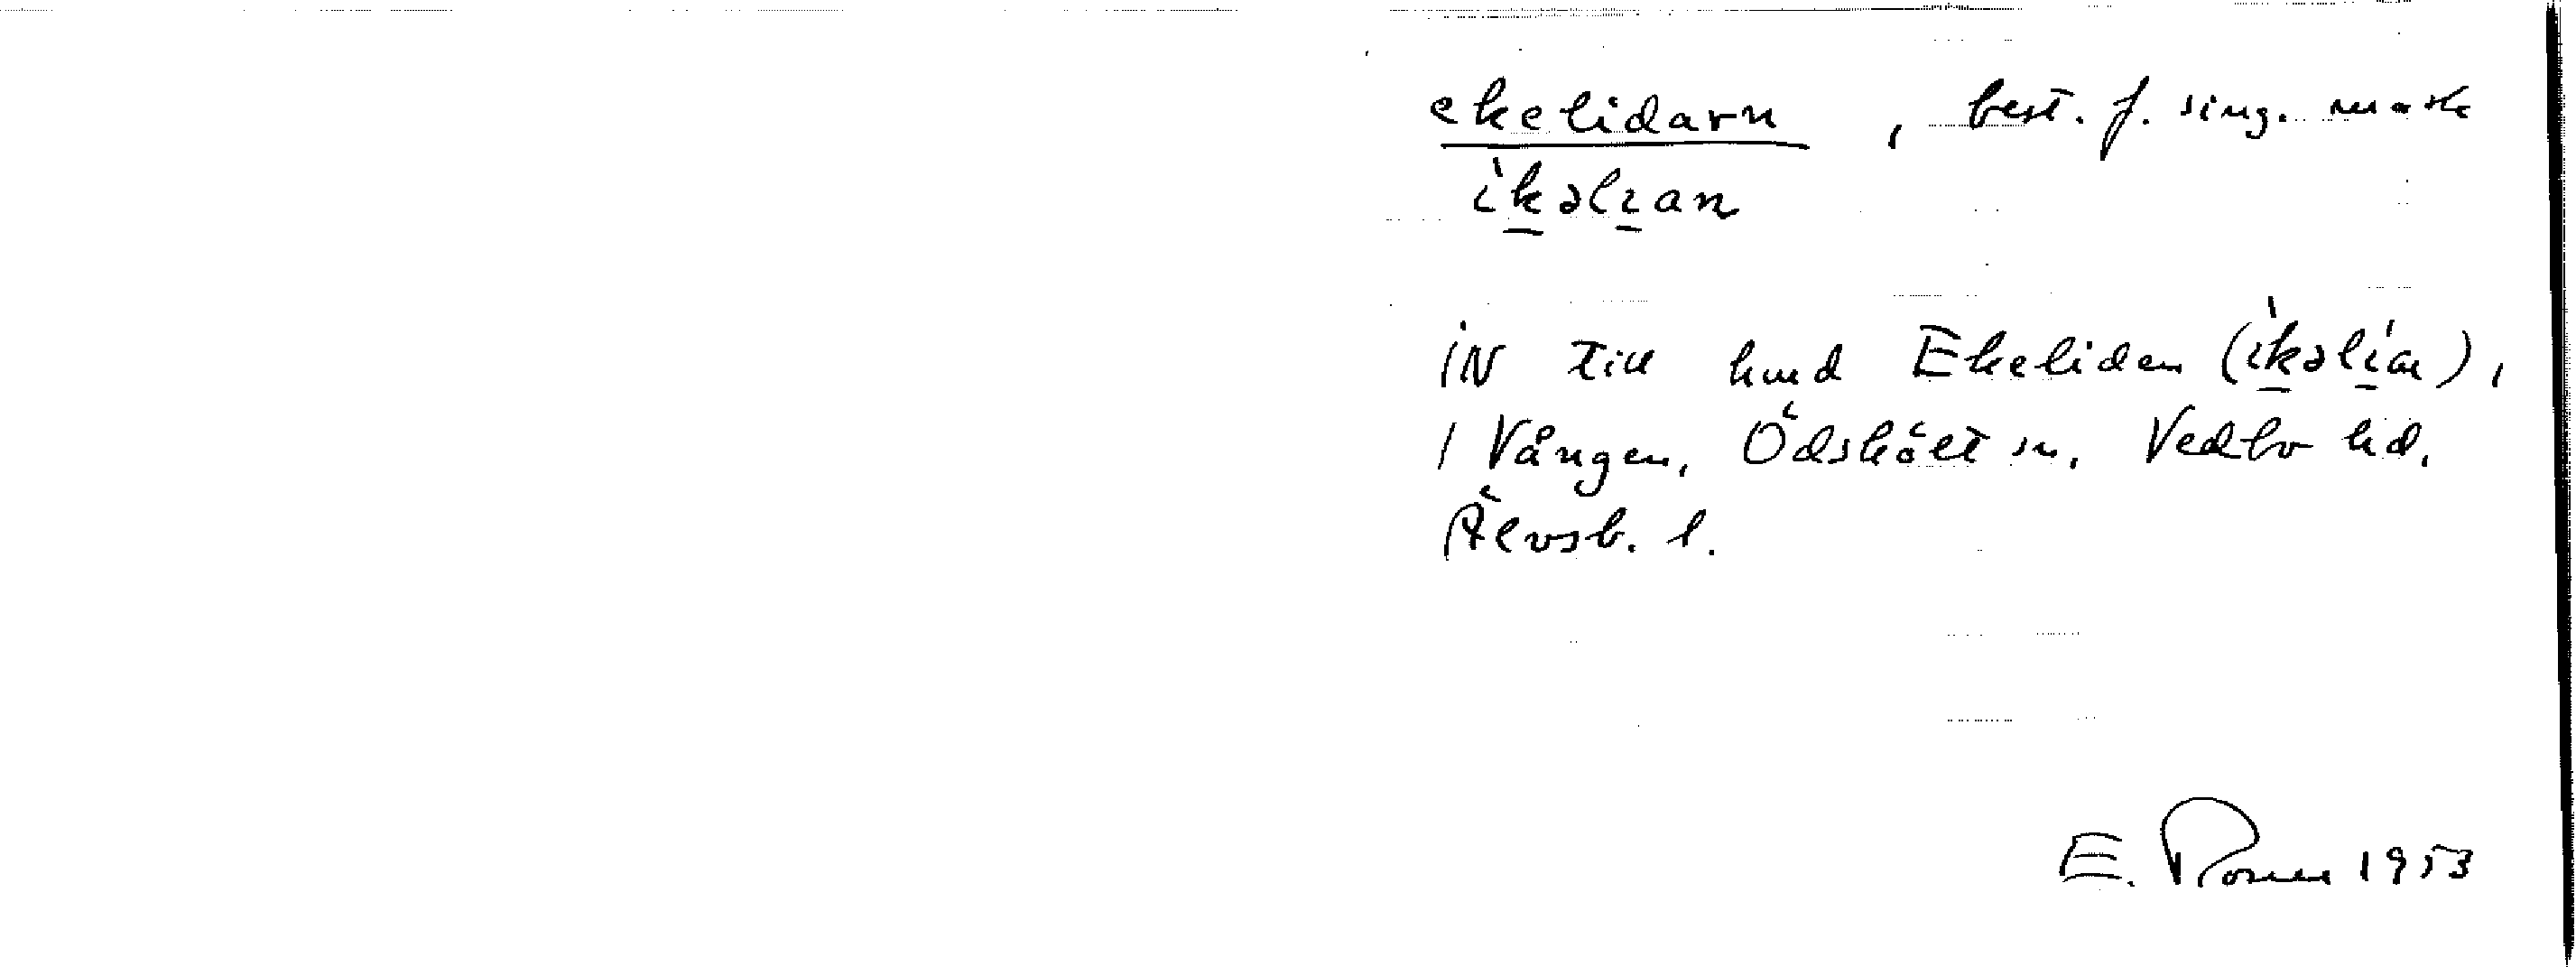 ekelidarn, best. f. sing. mask
ìkəlɩan
IN till hmd Ekeliden (ìkəlɩ́n),
1 Vången, Ödskölt sn, Vedbo hd,
Älvsb. l.
E. Rosen 1953